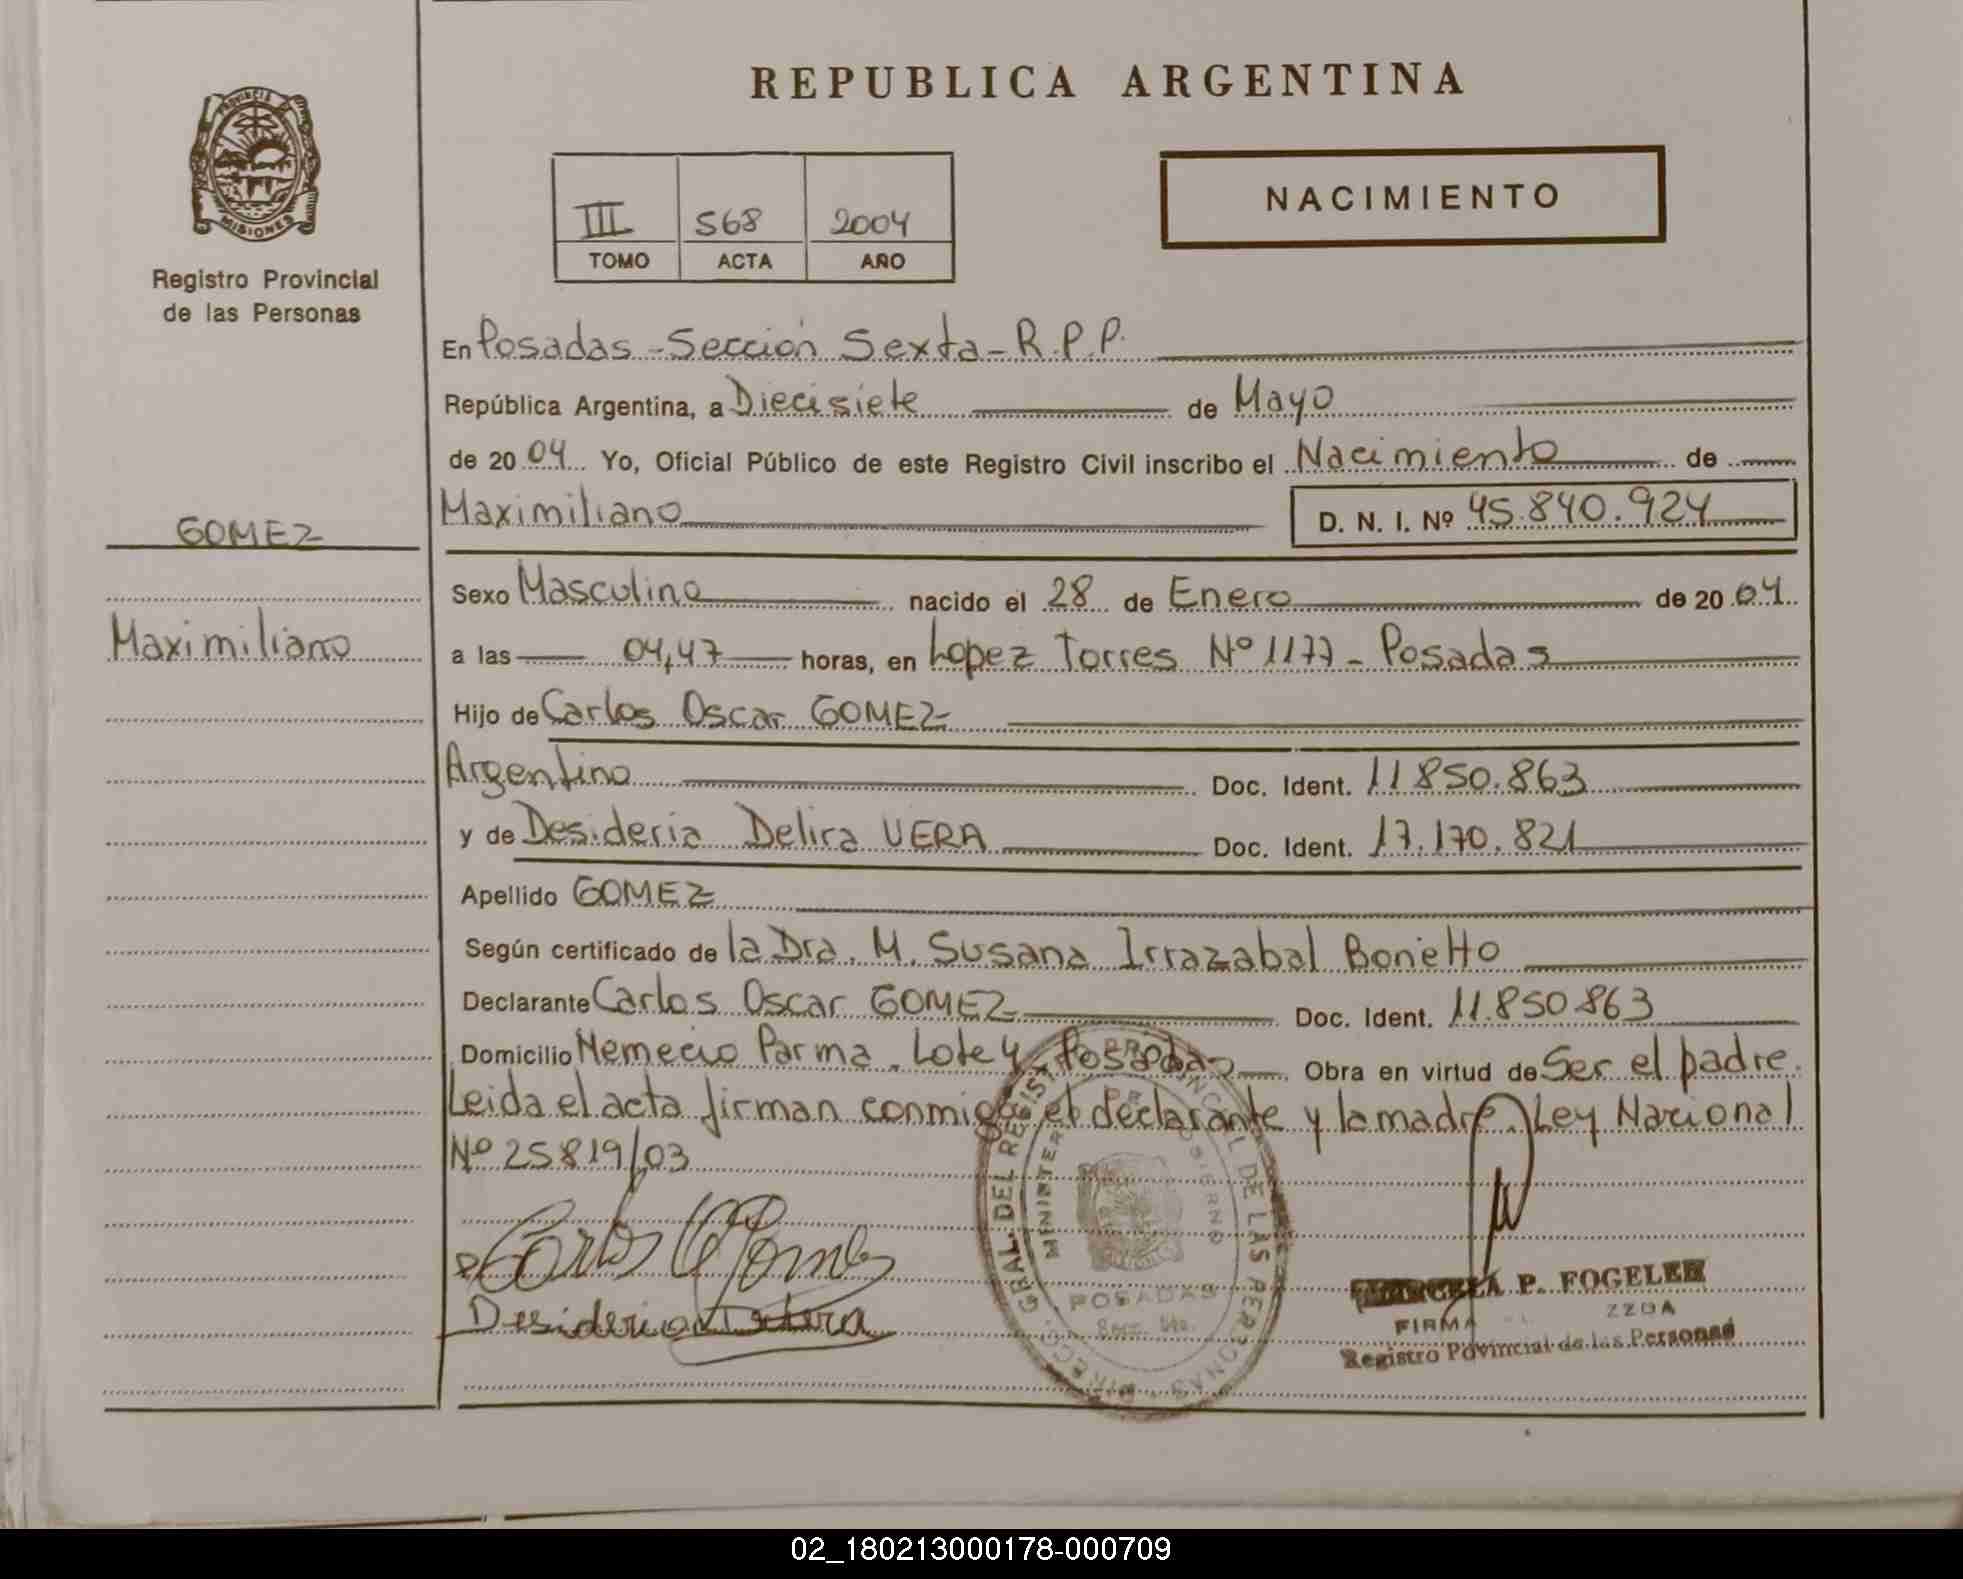 PROVINCIA
MISIONES
Registro Provincial
de las Personas
REPUBLICA ARGENTINA
III 568 2004
TOMO ACTA AÑO
NACIMIENTO
En Posadas - Sección Sexta - R.P.P.
República Argentina, a Diecisiete de Mayo
de 2004 Yo, Oficial Público de este Registro Civil inscribo el Nacimiento de
Maximiliano D. N. I. Nº 45.840.924
GOMEZ
Maximiliano
Sexo Masculino nacido el 28 de Enero de 2004
a las 04,47 horas, en Lopez Torres Nº 1177 - Posadas
Hijo de Carlos Oscar GOMEZ
Argentino Doc. Ident. 11.850.863
y de Desideria Delira VERA Doc. Ident. 17.170.821
Apellido GOMEZ
Según certificado de la Dra. M. Susana Irrazabal Bonetto
Declarante Carlos Oscar GOMEZ Doc. Ident. 11.850.863
Domicilio Nemecio Parma - Lote 4 - Posadas Obra en virtud de Ser el padre.
Leida el acta firman conmigo el declarante y la madre. Ley Nacional
Nº 25819/03
Carlos
Desideria
DIRECC. GRAL. DEL REGIST. PROVINCIAL DE LAS PERSONAS
POSADAS
P. FOGELER
FIRMA
Registro Povincial de las Personas
02_180213000178-000709